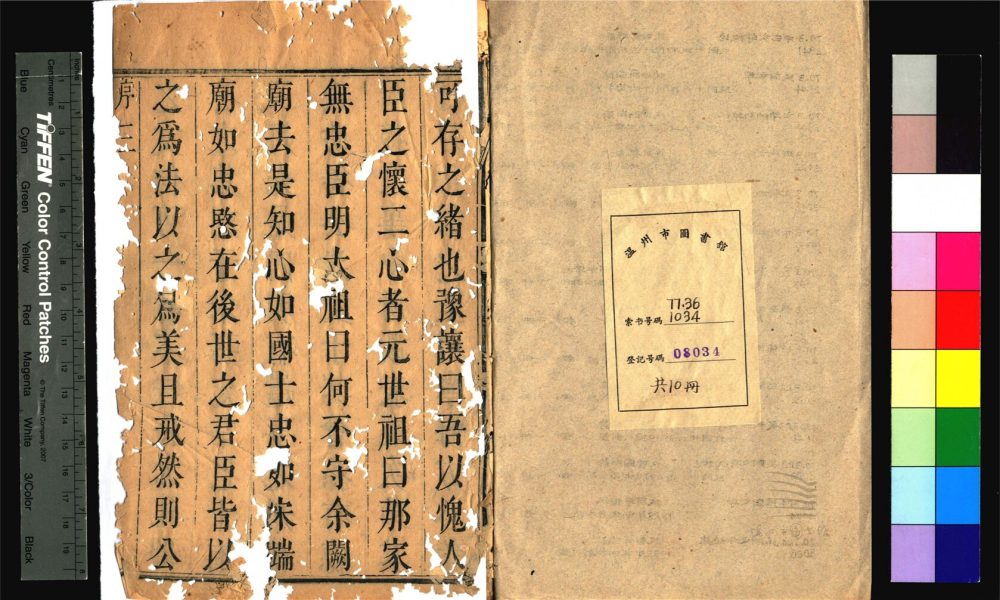 可存之緒也豫讓曰吾以愧人
臣之懷二心者元世祖曰那家
無忠臣明太祖曰何不守余闕
廟去是知心如國士忠如宋端
廟如忠愍在後世之君臣皆以
之爲法以之爲美且戒然則公
序 三
温州市圖書館
索书号碼 1034
登記号碼 08034
共10冊
Inches
Centimetres
TIFFEN Color Control Patches
© The Tiffen Company, 2007
Blue Cyan Green Yellow Red Magenta White 3/Color Black